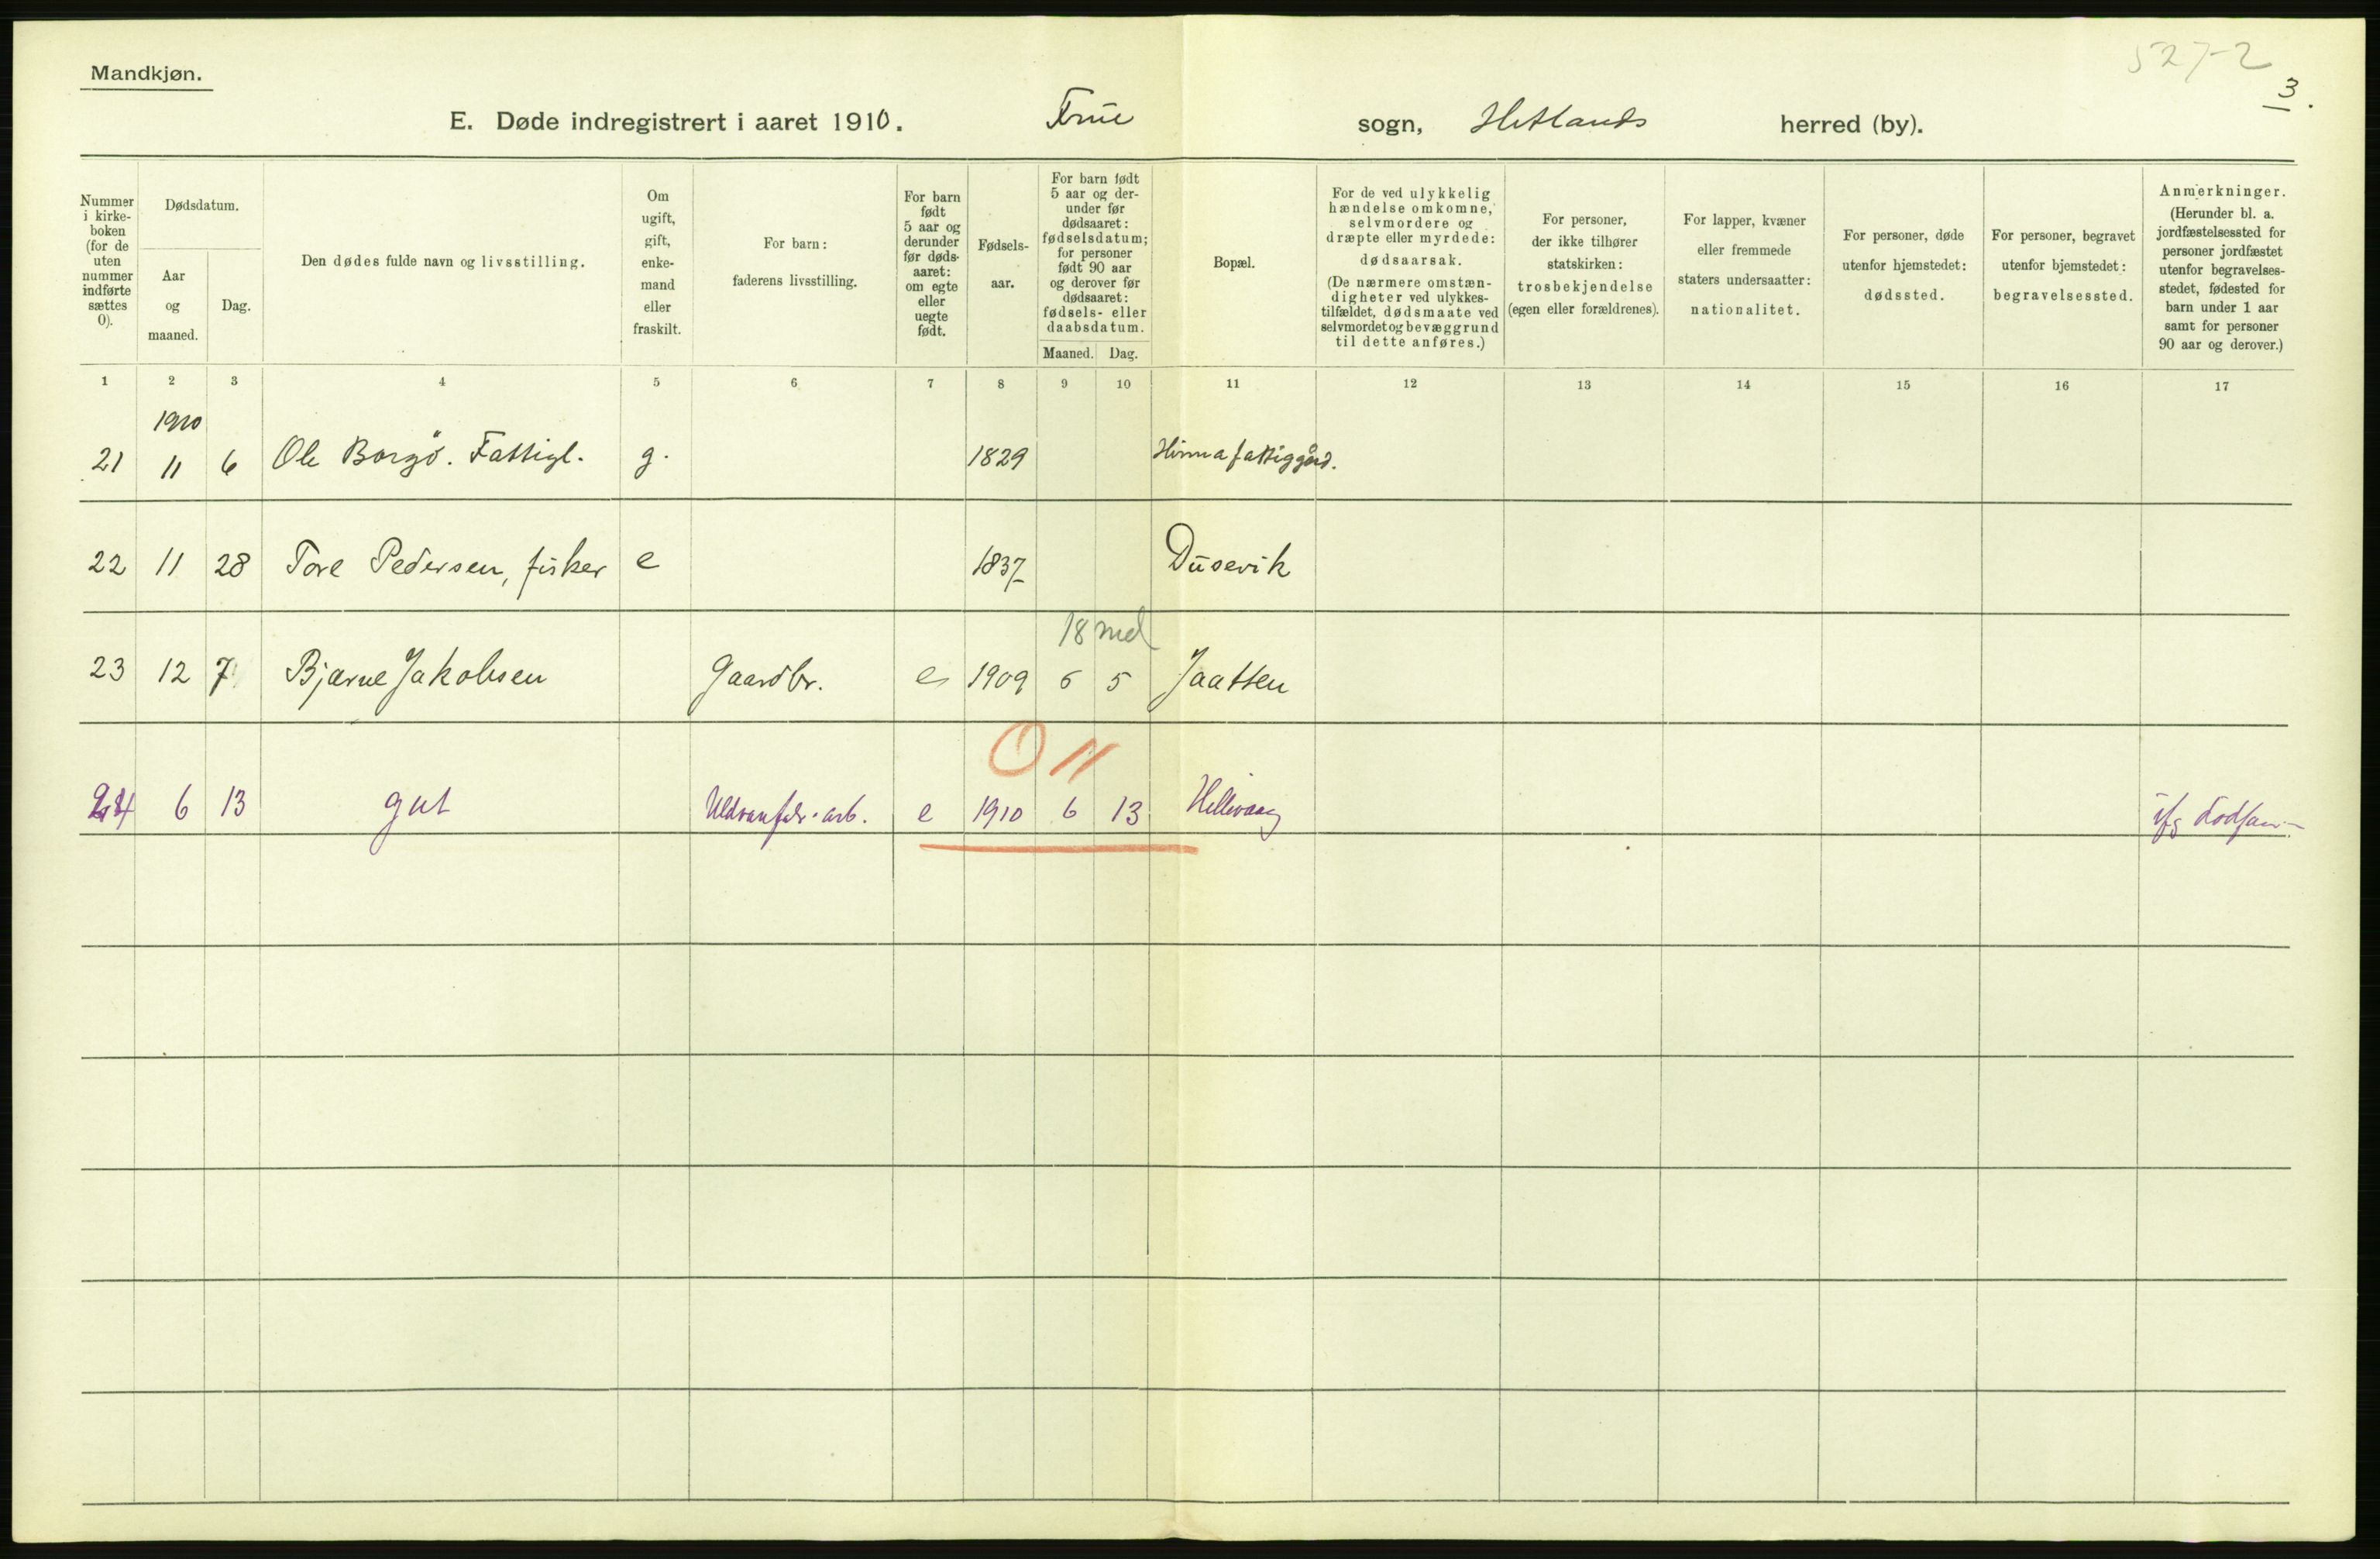 527-2
3.
Mandkjøn.
E. Døde indregistrert i aaret 1910. Frue sogn, Hetlands herred (by).
Nummer i kirke-boken (for de uten nummer indførte sættes 0).
Dødsdatum.
Aar og maaned.
Dag.
Den dødes fulde navn og livsstilling.
Om ugift, gift, enke-mand eller fraskilt.
For barn: faderens livsstilling.
For barn født 5 aar og derunder før døds-aaret: om egte eller uegte født.
Fødsels-aar.
For barn født 5 aar og der-under før dødsaaret: fødselsdatum; for personer født 90 aar og derover før dødsaaret: fødsels- eller daabsdatum.
Maaned. Dag.
Bopæl.
For de ved ulykkelig hændelse omkomne, selvmordere og dræpte eller myrdede: dødsaarsak. (De nærmere omstæn-digheter ved ulykkes-tilfældet, dødsmaate ved selvmordet og bevæggrund til dette anføres.)
For personer, der ikke tilhører statskirken: trosbekjendelse (egen eller forældrenes).
For lapper, kvæner eller fremmede staters undersaatter: nationalitet.
For personer, døde utenfor hjemstedet: dødssted.
For personer, begravet utenfor bjemstedet: begravelsessted.
Anmerkninger. (Herunder bl. a. jordfæstelsessted for personer jordfæstet utenfor begravelses-stedet, fødested for barn under 1 aar samt for personer 90 aar og derover.)
1 2 3 4 5 6 7 8 9 10 11 12 13 14 15 16 17
1910
21 11 6 Ole Borgö. Fattigl. g. 1829 Hinna fattiggård.
22 11 28 Tore Pedersen, fisker e 1837 Dusevik
18 md
23 12 7 Bjarne Jakobsen Gaardbr. e 1909 6 5 Jaatten
0 11
24 6 13 gut Uldvarefabr. arb. e 1910 6 13 Hillevaag